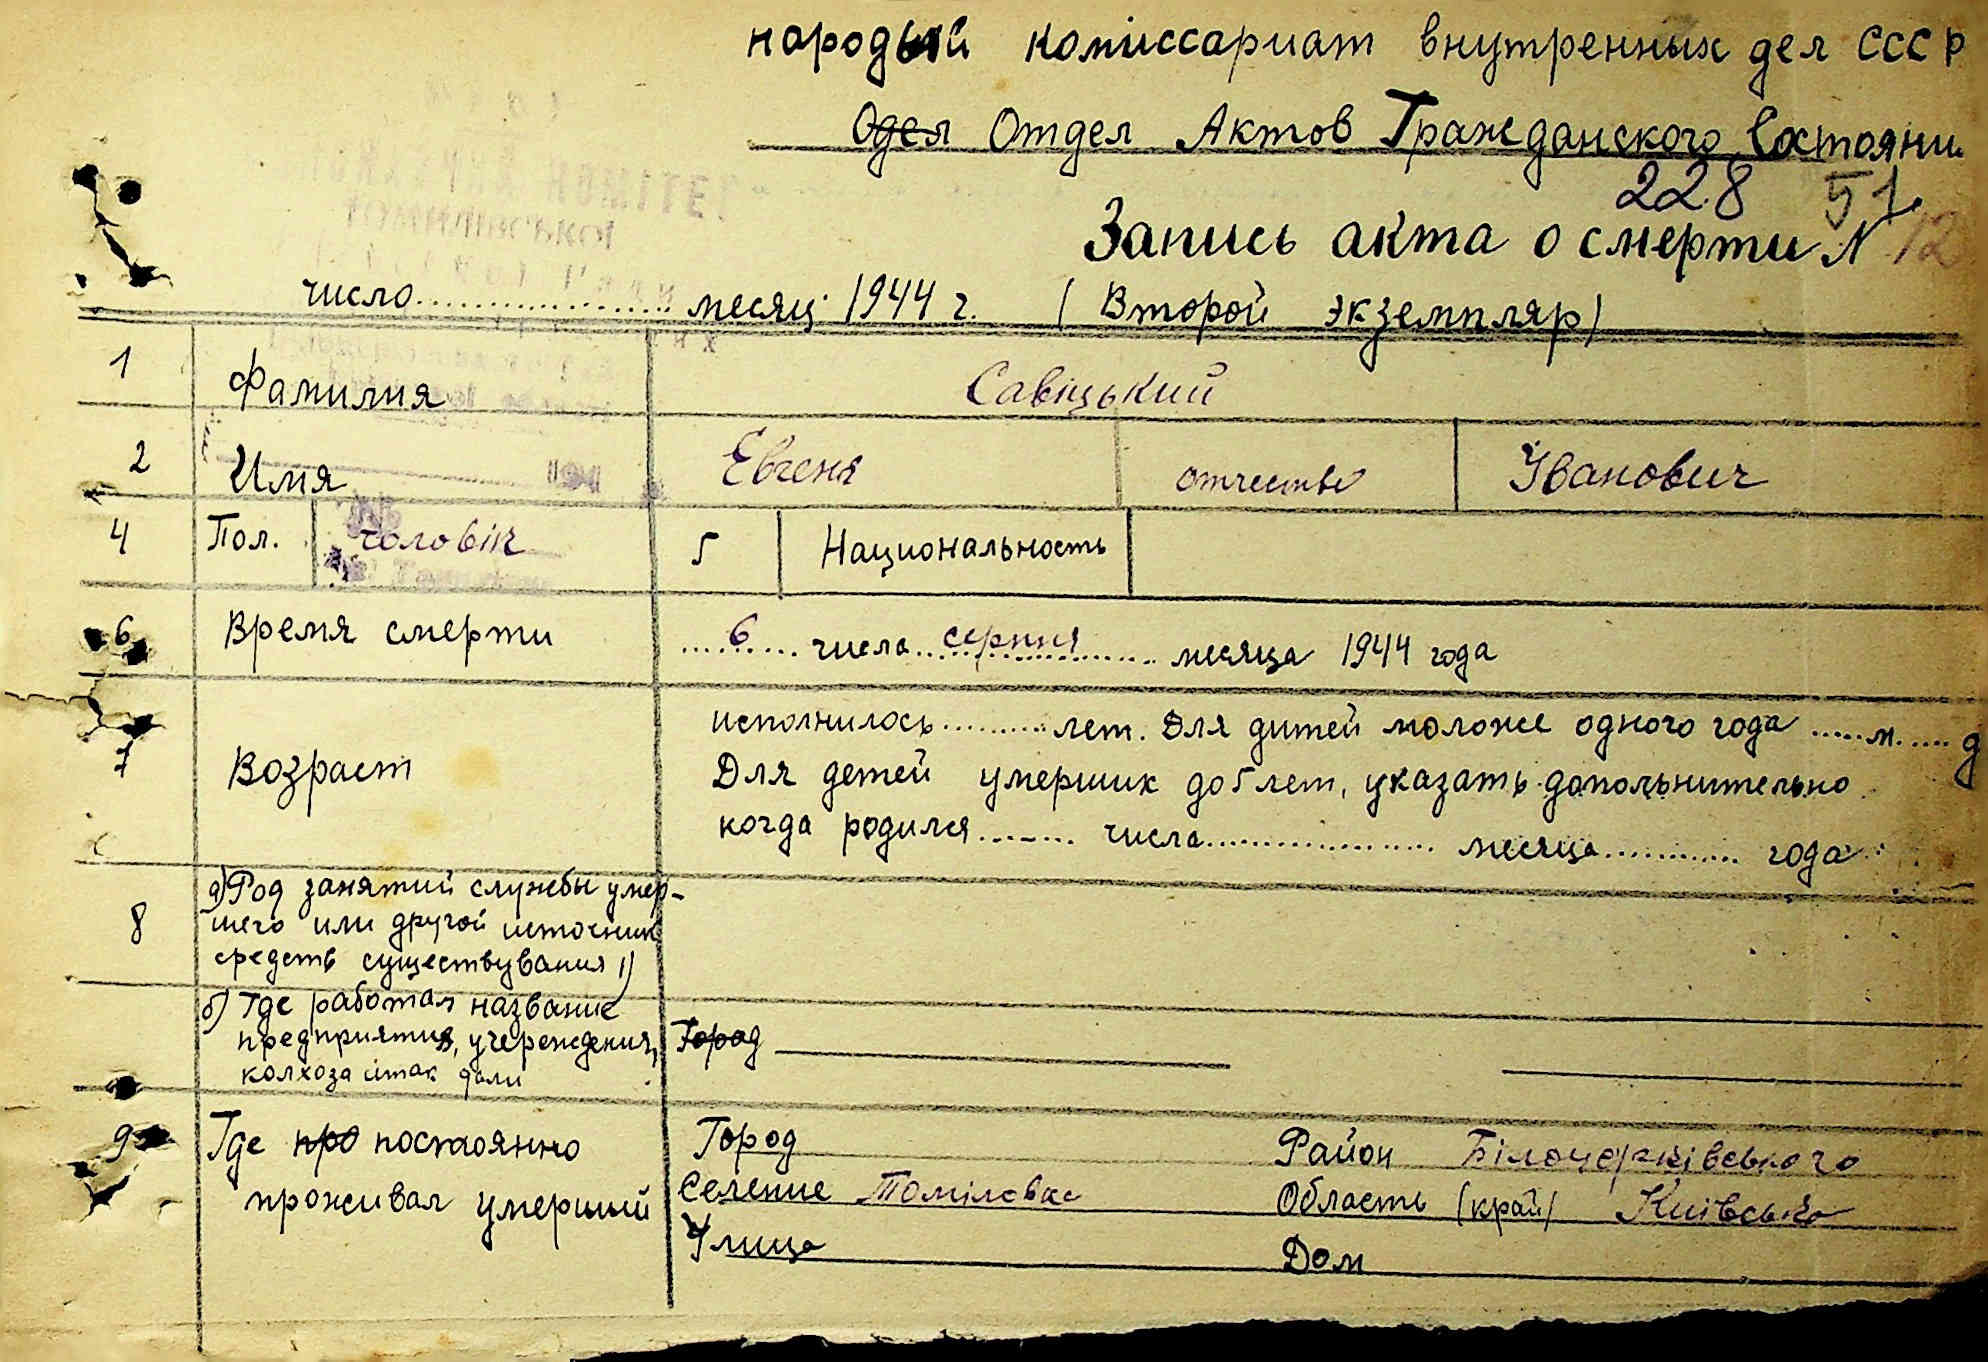 народый комиссариат внутренных дел СССР
Одел Отдел Актов Гражданского Состояни
228 51
Запись акта о смерти № 12
число.................. месяц 1944 г. (Второй экземпляр)
1 Фамилия Савіцький
2 Имя Евгеня отчество Іванович
4 Пол. чоловік 5 Национальность
6 Время смерти 6 числа серпня месяца 1944 года
исполнилось.......... лет. Для дитей моложе одного года ..... м. .... д
7 Возраст Для детей умерших до 5 лет, указать допольнительно
когда родился........ числа................... месяца........... года
8 а) Род занятий службы умер-
шего или другой источник
средств существувания 1)
б) Где работал название
предприятия, учереждения, Город
колхоза итак дали
9 Где про постаоянно Город Район Білоцерківського
проживал умерший Селение Томіловка Область (край) Київська
Улица Дом